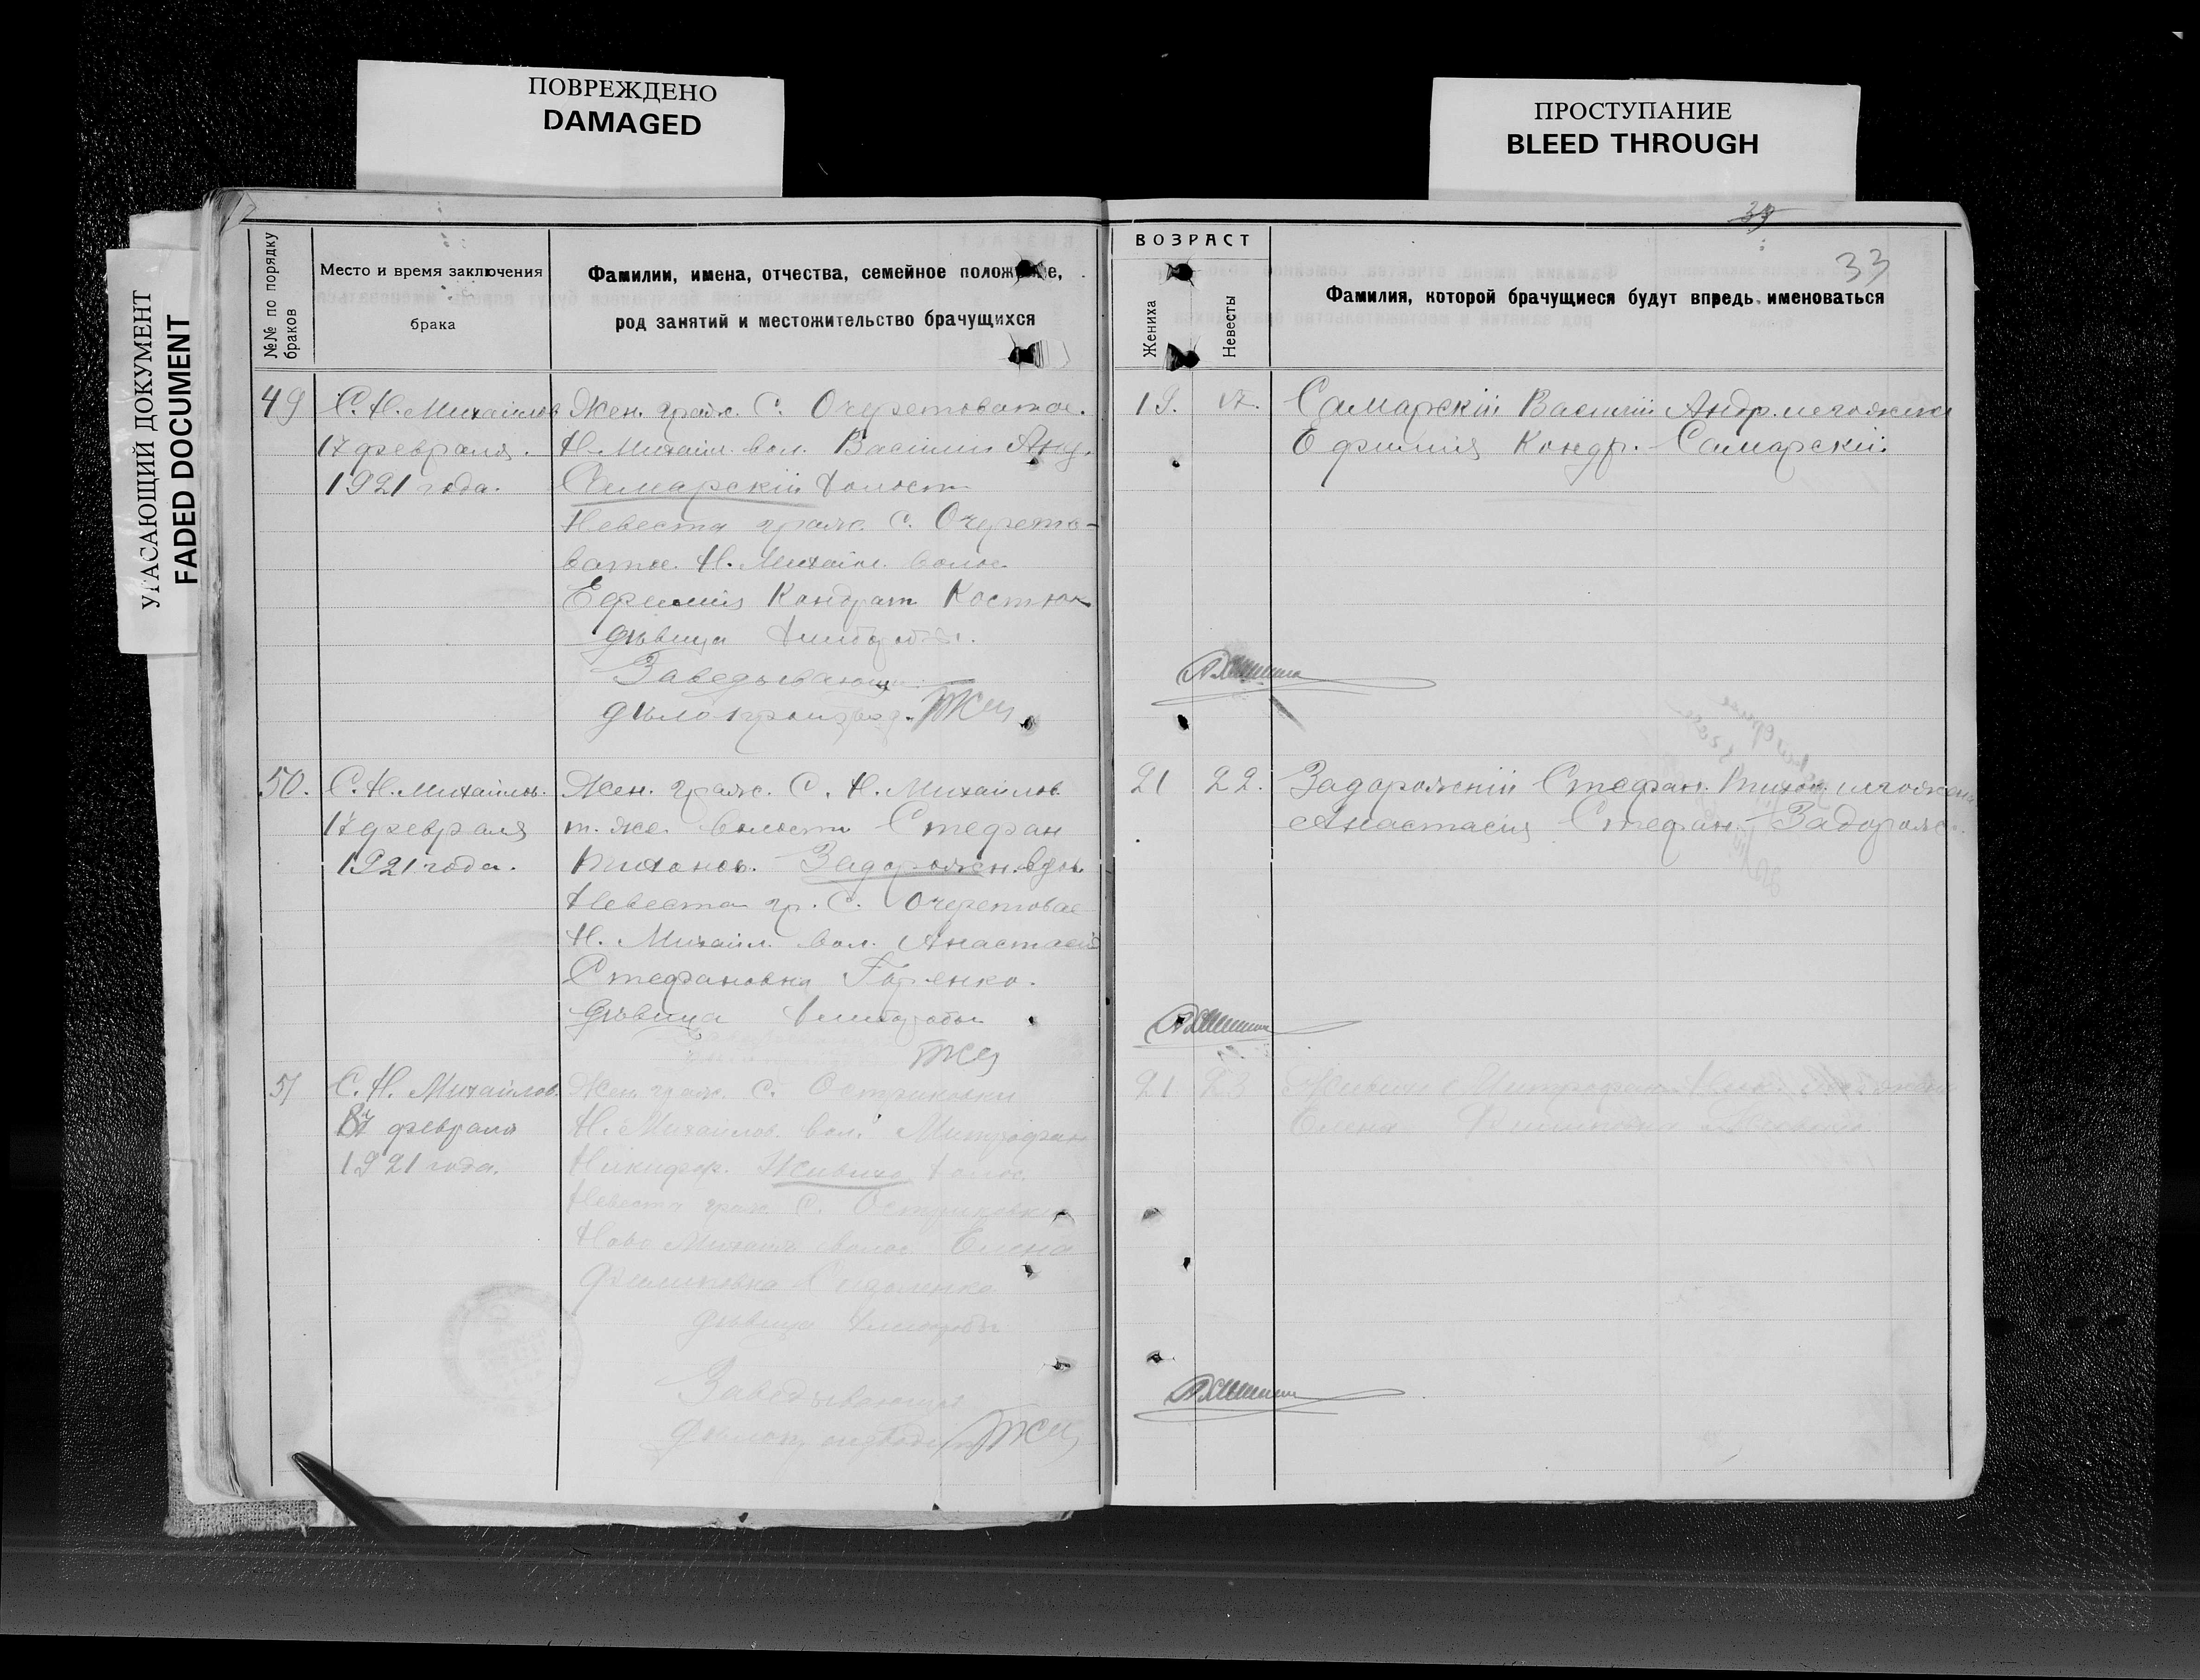 ПОВРЕЖДЕНО
DAMAGED
ПРОСТУПАНИЕ
BLEED THROUGH
УГАСАЮЩИЙ ДОКУМЕНТ
FADED DOCUMENT
39
33
№№ по порядку браков
Место и время заключения
брака
Фамилии, имена, отчества, семейное полож е,
род занятий и местожительство брачущихся
ВОЗРАСТ
Жениха
Невесты
Фамилия, которой брачущиеся будут впредь именоваться
49
С. Н. Михайлов
17 февраля.
1921 года.
Жен. граж. С. Очеретоватое.
Н-Михайл. вол. Василий Анд.
Самарскій холост
Невеста граж. С. Очерето-
ватое. Н. Михайл. волос
Ефимия Кондрат Костюк
дѣвица
Заведывающ.
дѣлопроизвод.
19. 17.
Самарскій Василій Андр. и его жена
Ефимия Кондр. Самарскій.
50.
С. Н. Михайлов.
17 февраля
1921 года.
Жен. граж. С. Н. Михайлов
т. же. волости Стефан
Тихонов. Задорожн. вдов.
Невеста гр. С. Очеретовае
Н. Михайл. вол. Анастасія
Стефановна Горенко.
дѣвица
21 22.
Задорожній Стефан. Тихон. и его жена
Анастасия Стефан. Задорож.
51
С. Н. Михайлов.
17 февраля
1921 года.
Жен. граж. С. Остриковки
Н. Михайлов. вол. Митрофан
Никифор. холос.
Невеста граж. С. Остриковки
Ново Михайл волос Елена
Филиповна
дѣвица
Заведывающий
21. 23
Митрофан
Елена